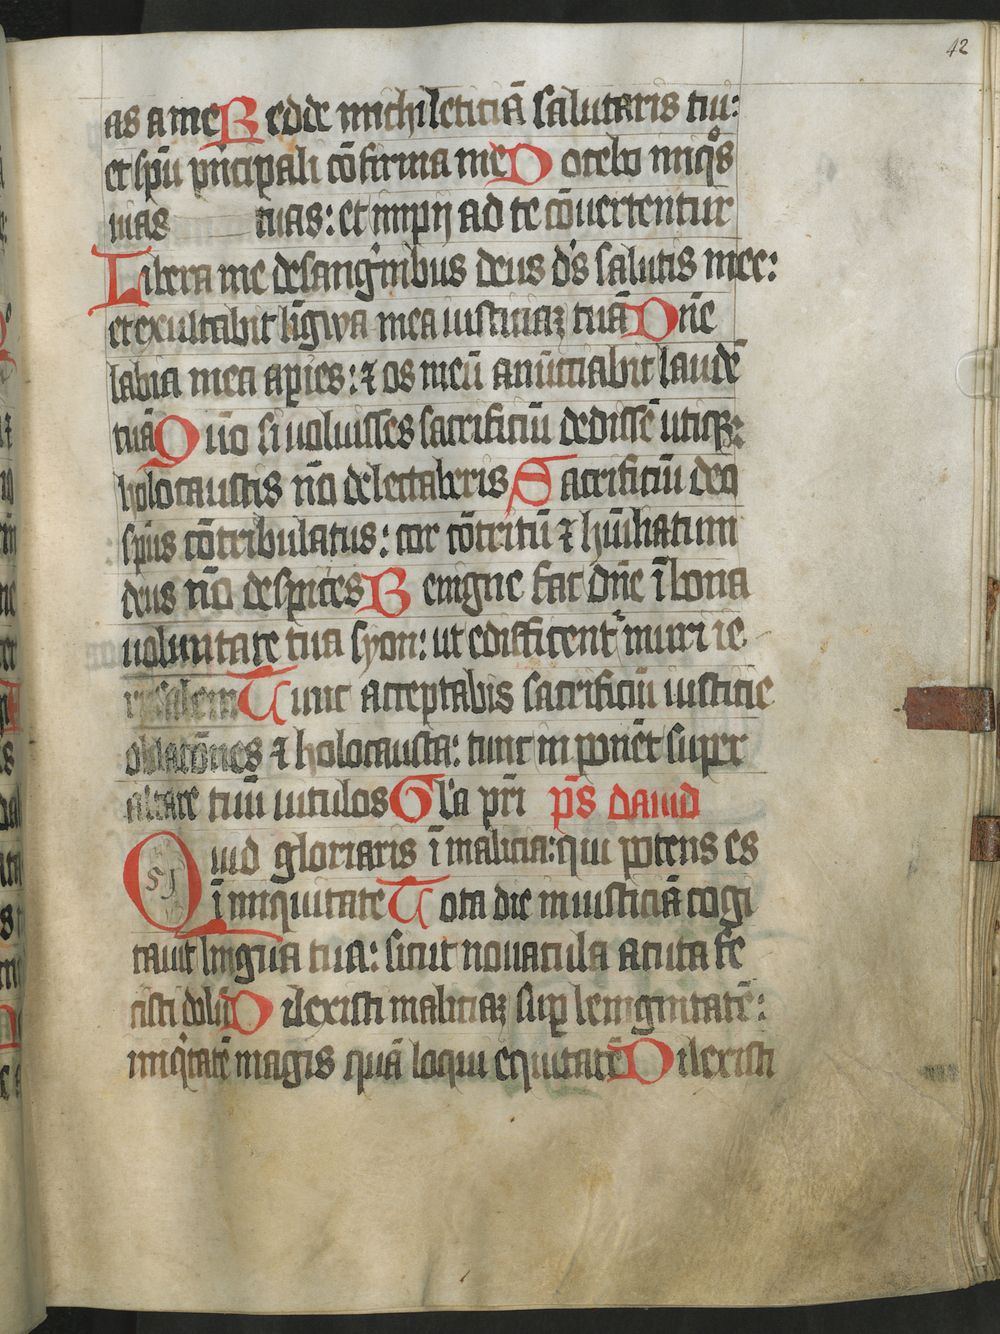 42
as a me Redde michi leticiā salutaris tui:
et spū pncipali cōfirma me Docebo iniqͦs
uias tuas: et impij ad te cōuertentur
Libera me de sanguinibus deus dˢs salutis mee:
et exultabit ligwa mea iusticiaꝫ tuā Dn̄e
labia mea apies: ⁊ os meū anūciabit laudē
tuā Qūo si uoluisses sacrificiū dedissē utiqꝫ:
holocaustis nō delectaberis Sacrificiū deo
spūs cōtribulatus: cor cōtritū ⁊ hūiliatum
deus nō despicies Benigne fac dn̄e ī bona
uoluntate tua syon: ut edifficent᷑ muri ie
rusalem Tunc acceptabis sacrificiū iusticie
oblacōnes ⁊ holocausta: tunc in ponēt super
altare tuū uitulos Gl'a pr̄i p̄s dauid
Quid gloriaris ī malicia: qui potens es
51
ī iniquitate Tota die iniusticiā cogi
tauit lingua tua: sicut nouacula acuta fe
cisti dolū Dilexisti maliciaꝫ suꝑ benignitatē:
iniqͥtatē magis quā loqui equitatē Dilexisti